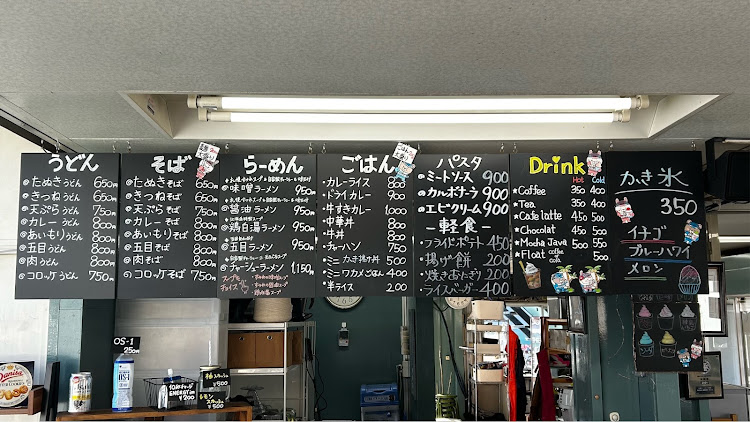 うどん
◎たぬきうどん 650円
◎きつねうどん 650円
◎天ぷらうどん 750
◎カレーうどん 750
◎あいもりうどん 800
◎五目うどん 800
◎肉うどん 800
◎コロッケうどん 750円
そば
◎たぬきそば 650円
◎きつねそば 650
◎天ぷらそば 750
◎カレーそば 750
◎あいもりそば 800
◎五目そば 800
◎肉そば 800
◎コロッケそば 750円
らーめん
◎味噌ラーメン 950円
◎醤油ラーメン 950
◎鶏白湯ラーメン 950
◎五目ラーメン 950
◎チャーシューラーメン 1,150円
スープを
チョイス
ごはん
・カレーライス 800円
・ドライカレー 900
・牛すきカレー 1,000
・中華丼 800
・牛丼 800
・チャーハン 750
・ミニかき揚げ丼 450
・ミニワカメごはん 400
・半ライス 200
パスタ
・ミートソース 900
・カルボナーラ 900
・エビクリーム 900
-軽食-
・フライドポテト 450
・揚げ餅 200
・焼きおにぎり 200
・ライスバーガー 400
Drink
Hot Cold
★Coffee 350 400
★Tea 350 400
★Cafe latte 450 500
★Chocolat 450 500
★Mocha Java 500 550
★Float coffee cola 550
かき氷
350
イチゴ
ブルーハワイ
メロン
OS-1
250円
Danisa
10秒チャージ
ENERGY
¥200
¥500
レモン
¥500